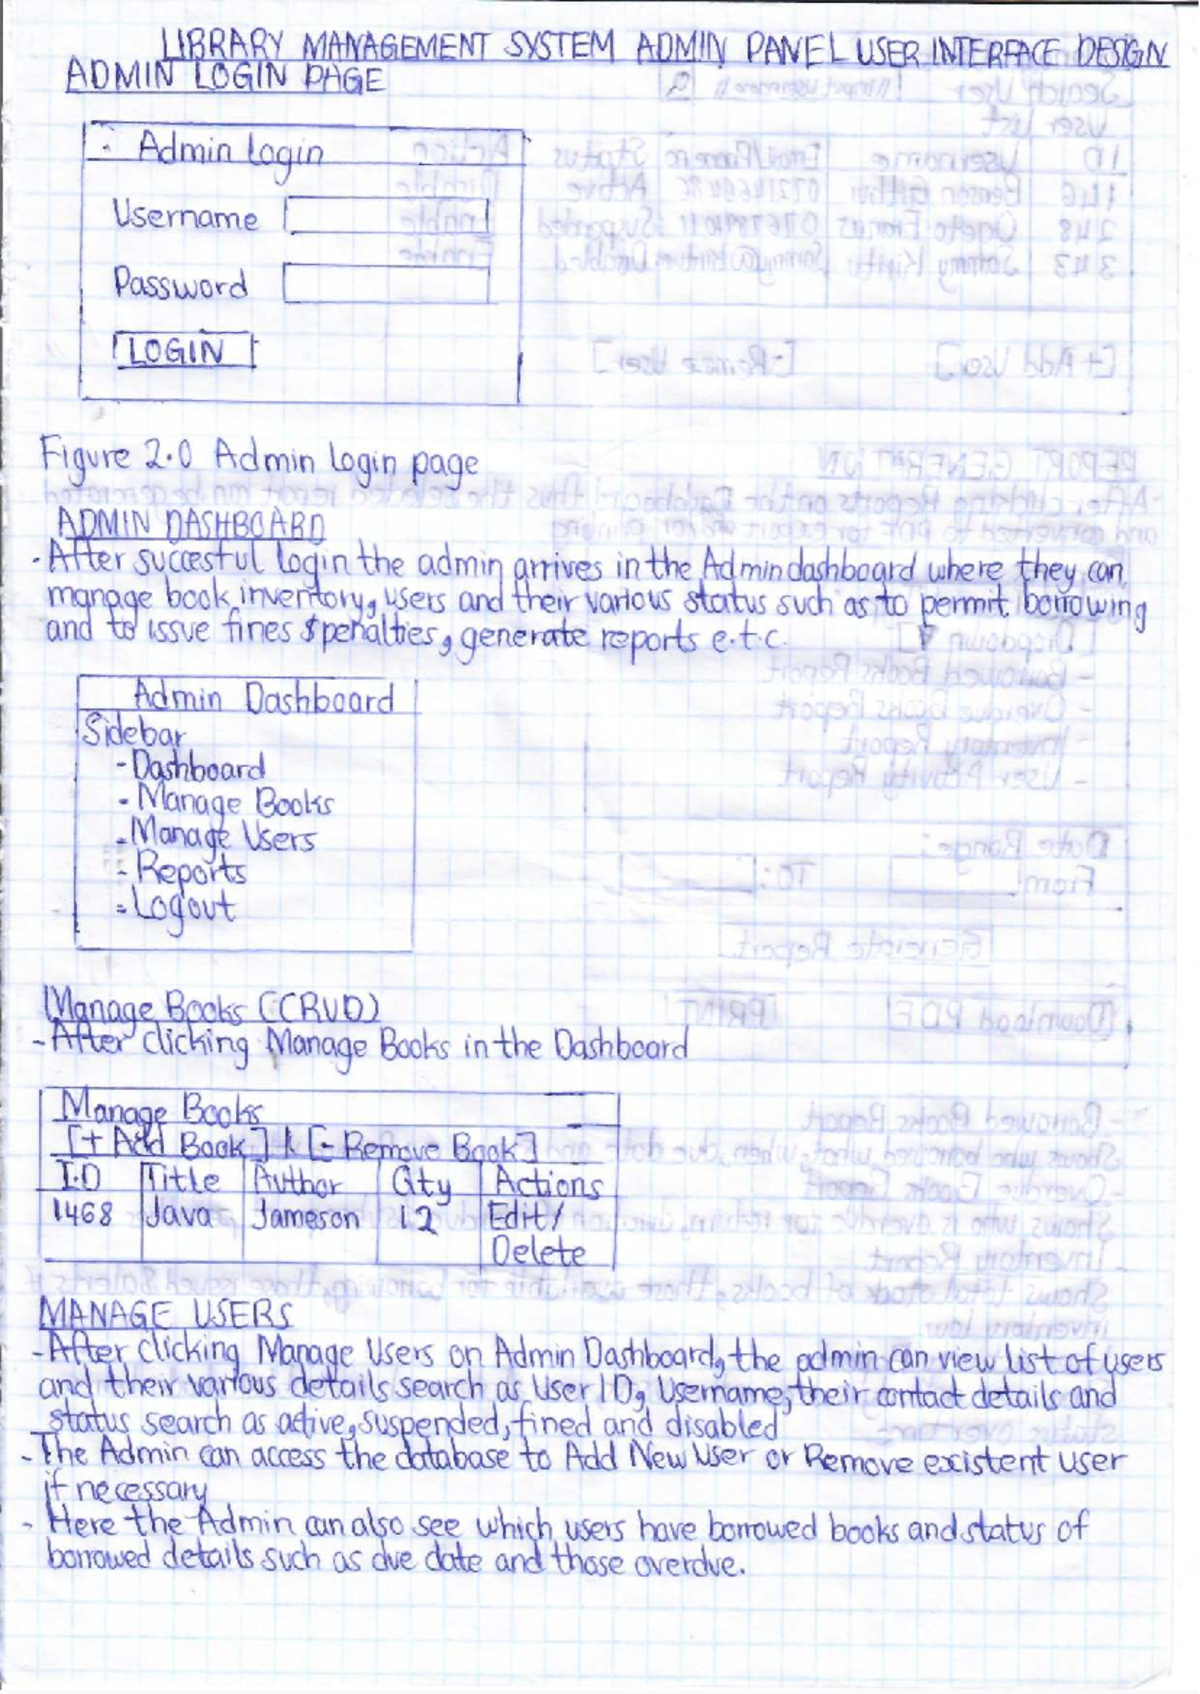 LIBRARY MANAGEMENT SYSTEM ADMIN PANEL USER INTERFACE DESIGN
ADMIN LOGIN PAGE
Admin Login
Username
Password
LOGIN
Figure 2.0 Admin login page
ADMIN DASHBOARD
- After succesful login the admin arrives in the Admin dashboard where they can
manage book inventory, users and their various status such as to permit borrowing
and to issue fines $ penalties, generate reports e.t.c.
Admin Dashboard
Sidebar
- Dashboard
- Manage Books
- Manage Users
- Reports
- Logout
Manage Books (CRUD)
- After clicking Manage Books in the Dashboard
Manage Books
[+ Add Book] & [- Remove Book]
I.D Title Author Qty Actions
1468 Java Jameson 12 Edit/
Delete
MANAGE USERS
- After clicking Manage Users on Admin Dashboard, the admin can view list of users
and their various details search as User ID, Username, their contact details and
status search as active, suspended, fined and disabled
- The Admin can access the database to Add New User or Remove existent user
if necessary
- Here the Admin can also see which users have borrowed books and status of
borrowed details such as due date and those overdue.